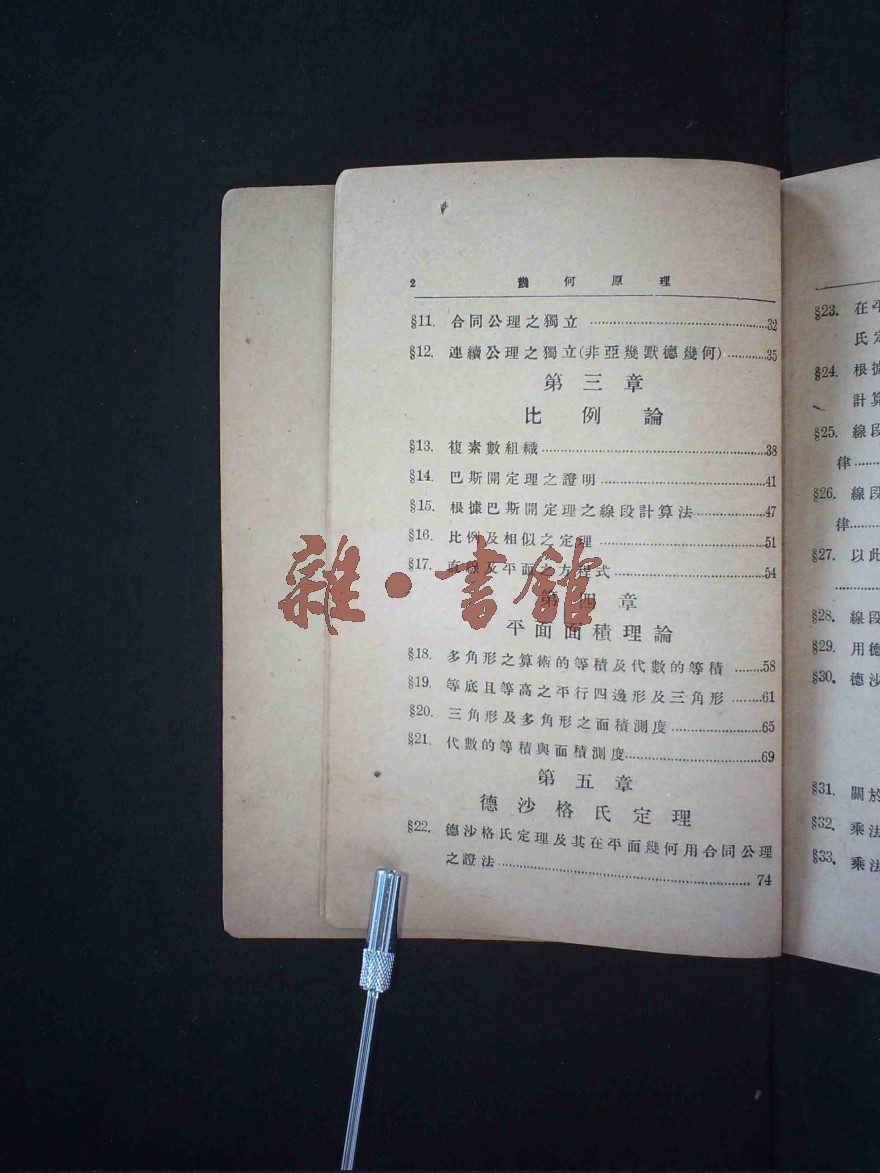 2 幾何原理
§11. 合同公理之獨立 ........ 32
§12. 連續公理之獨立(非亞幾默德幾何) ........ 35
第三章
比例論
§13. 複素數組織 ........ 38
§14. 巴斯開定理之證明 ........ 41
§15. 根據巴斯開定理之線段計算法 ........ 47
§16. 比例及相似之定理 ........ 51
§17. 直線及平面之方程式 ........ 54
第四章
平面面積理論
§18. 多角形之算術的等積及代數的等積 ........ 58
§19. 等底且等高之平行四邊形及三角形 ........ 61
§20. 三角形及多角形之面積測度 ........ 65
§21. 代數的等積與面積測度 ........ 69
第五章
德沙格氏定理
§22. 德沙格氏定理及其在平面幾何用合同公理
之證法 ........ 74
雜·書館
§23. 在平
氏定
§24. 根據
計算
§25. 線段
律
§26. 線段
律
§27. 以此
§28. 線段
§29. 用德
§30. 德沙
§31. 關於
§32. 乘法
§33. 乘法